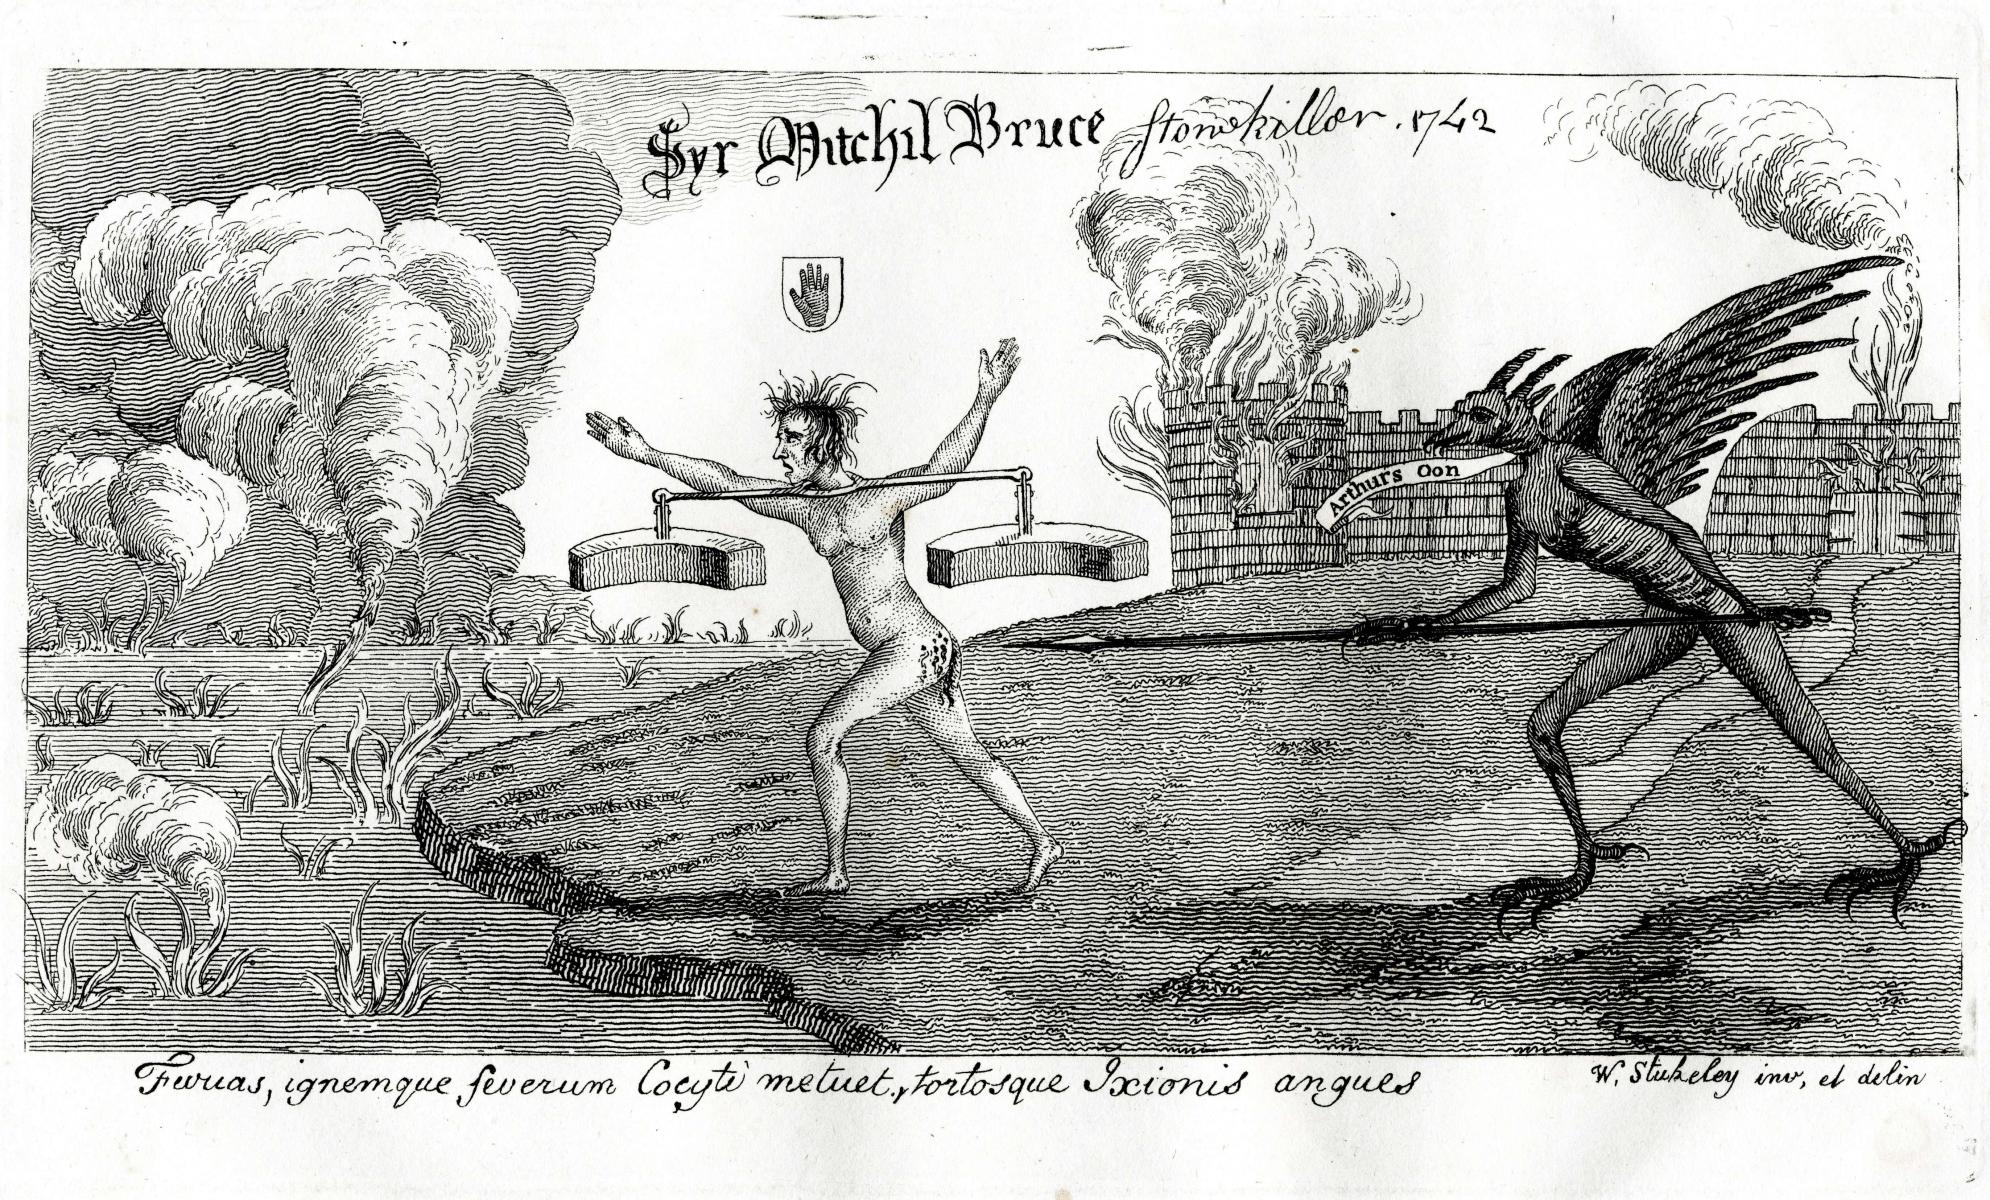 Syr Mitchil Bruce Stonekiller. 1742
Arthurs Oon
Furias, ignemque severum Cocyti metuet, tortosque Ixionis angues
W. Stukeley inv, et delin